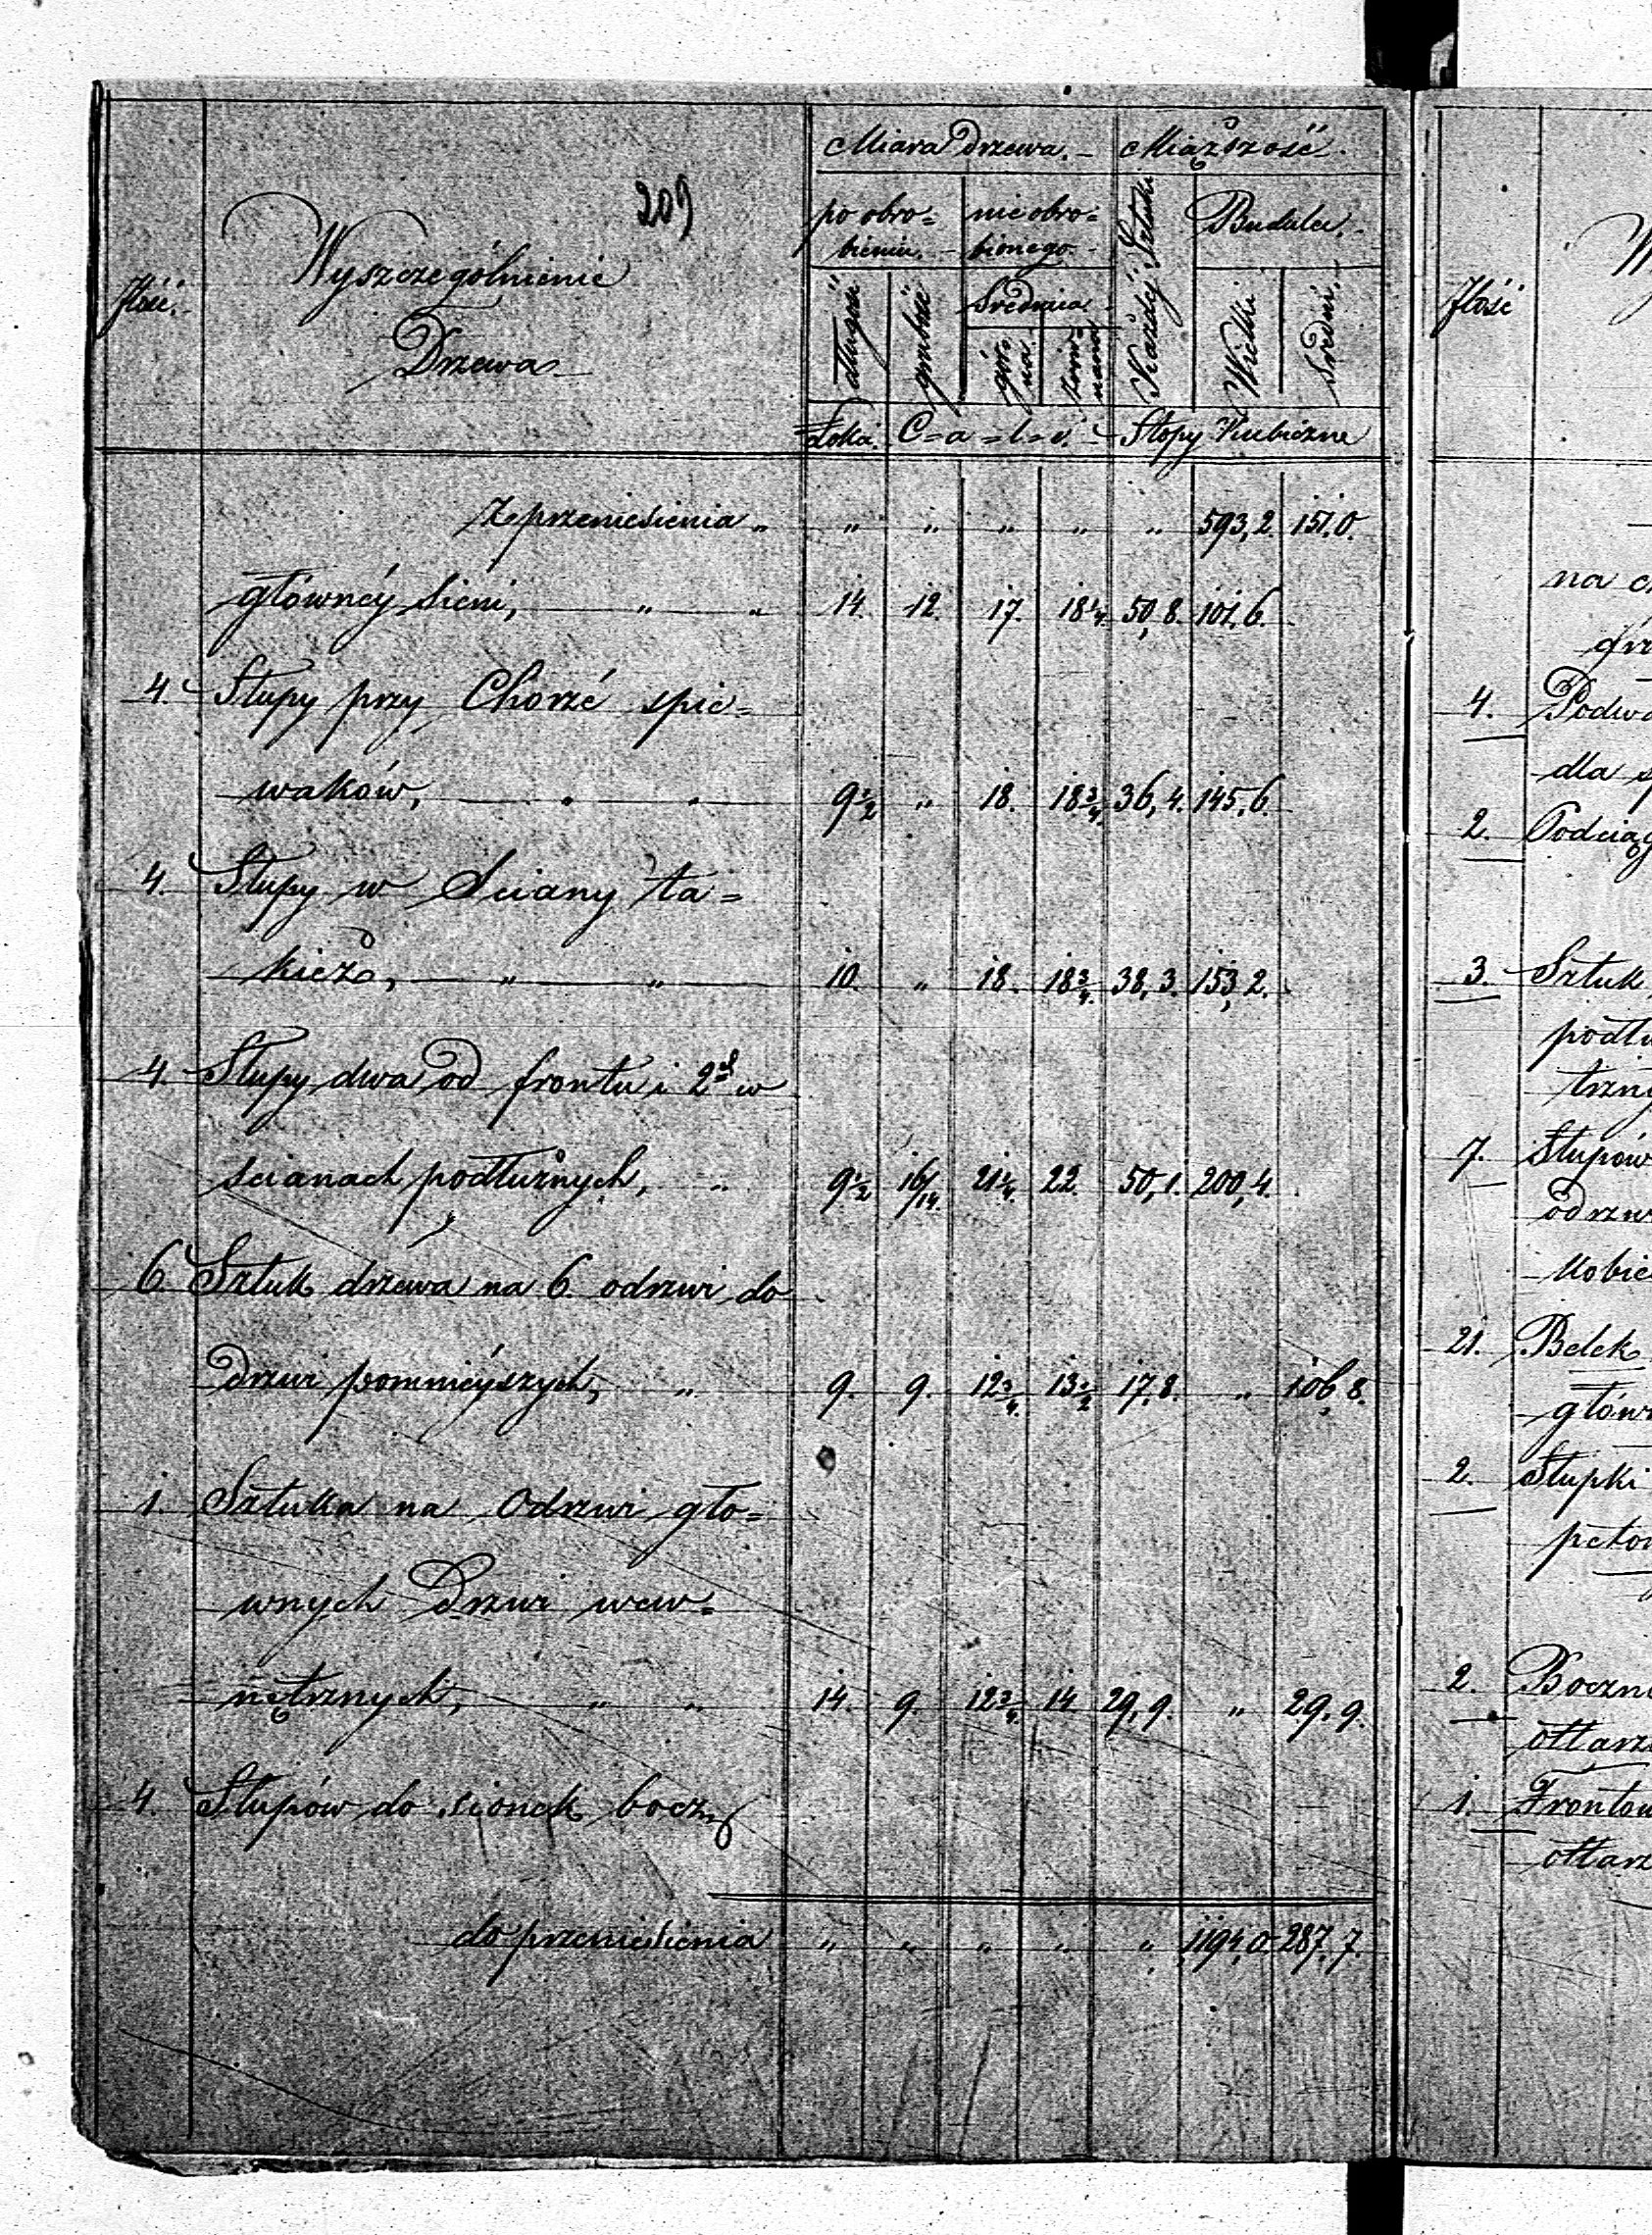 209
Ilość.
Wyszczególnienie
Drzewa
Miara Drzewa. Miąższość.
po obro=
bieniu.
nieobro=
bionego.
Każdéj Sztuki
Budulec.
długość
grubość
Średnica
gór=
na.
Wielki
Średni.
Łokci. C=a=l=i. Stopy Kubiczne
Z przeniesienia „ „ „ „ „ „ 593,2. 151,0.
głównéj Sieni, „ „ 14. 12. 17. 18¼. 50,8. 101,6.
4. Słupy przy Chorzé spie=
waków, 9½ „ 18. 18¾. 36,4. 145,6.
4. Słupy w Sciany ta=
kież, „ „ 10. „ 18. 18¾. 38,3. 153,2.
4. Słupy dwa od frontu i 2 w
scianach podłużnych, „ 9½ 16/14. 21¼. 22. 50,1. 200,4.
6. Sztuk drzewa na 6 odrzwi do
drzwi pomniejszych, „ 9. 9. 12¾. 13½ 17,8. „ 106,8.
1. Sztuka na Odrzwi głó=
wnych Drzwi wew=
nętrznych, „ „ 14. 9. 12¾. 14 29,9. „ 29,9.
4. Słupów do sionek boczn
do przeniesienia „ „ „ „ „ 1194,0 287,7.
Ilość
na
4.
dla
2. Podciąg
3. Sztuk
podłu
trzny
7. Słupów
odrzw
kobie
21. Belek
główn
2. Słupki
2. Boczn
ołtarz
1. Frontow
ołtarz